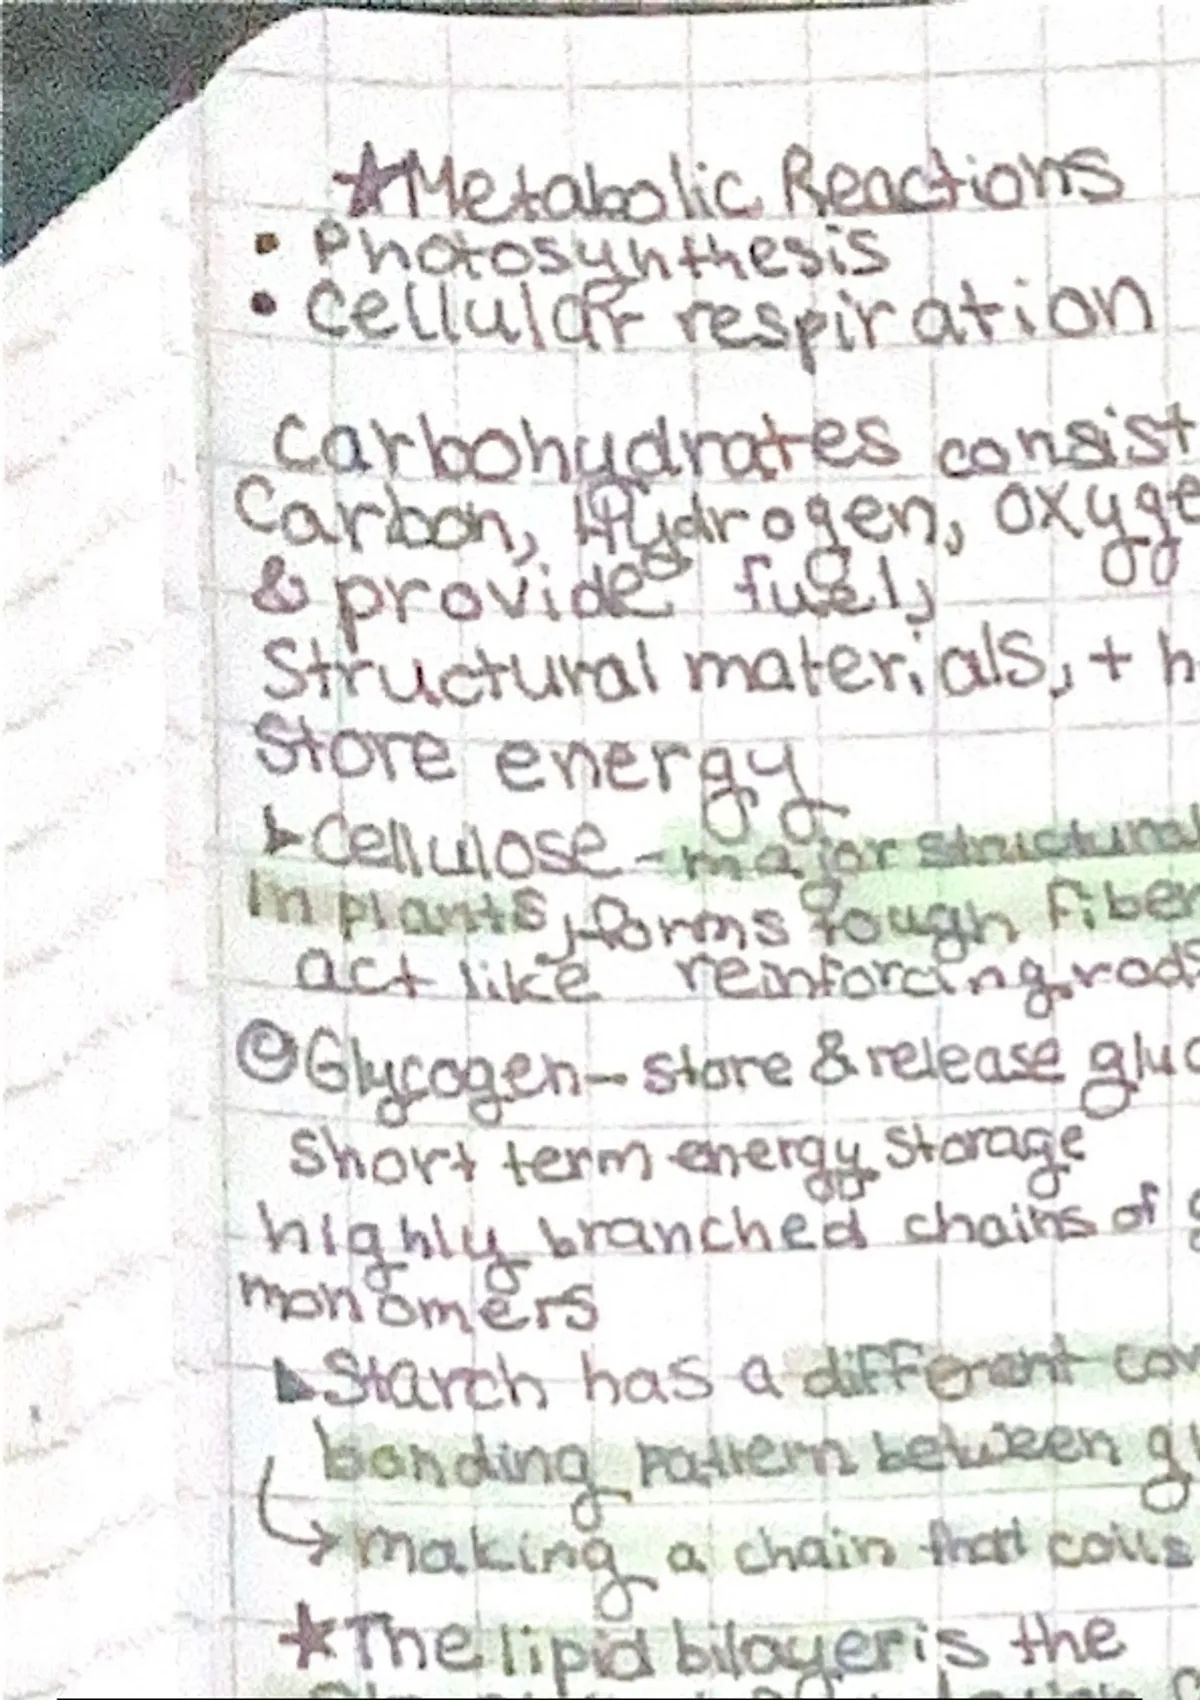 ★Metabolic Reactions
• Photosynthesis
• Cellular respiration
Carbohydrates consist
Carbon, Hydrogen, oxyge
& provide fuel,
Structural materials, + h
Store energy
▸Cellulose - major structural
in plants, forms tough fiber
act like reinforcing rods
Glycogen - store & release gluc
short term energy storage
highly branched chains of g
monomers
▸Starch has a different cov
bonding pattern between gl
↳ making a chain that coils
★The lipid bilayer is the